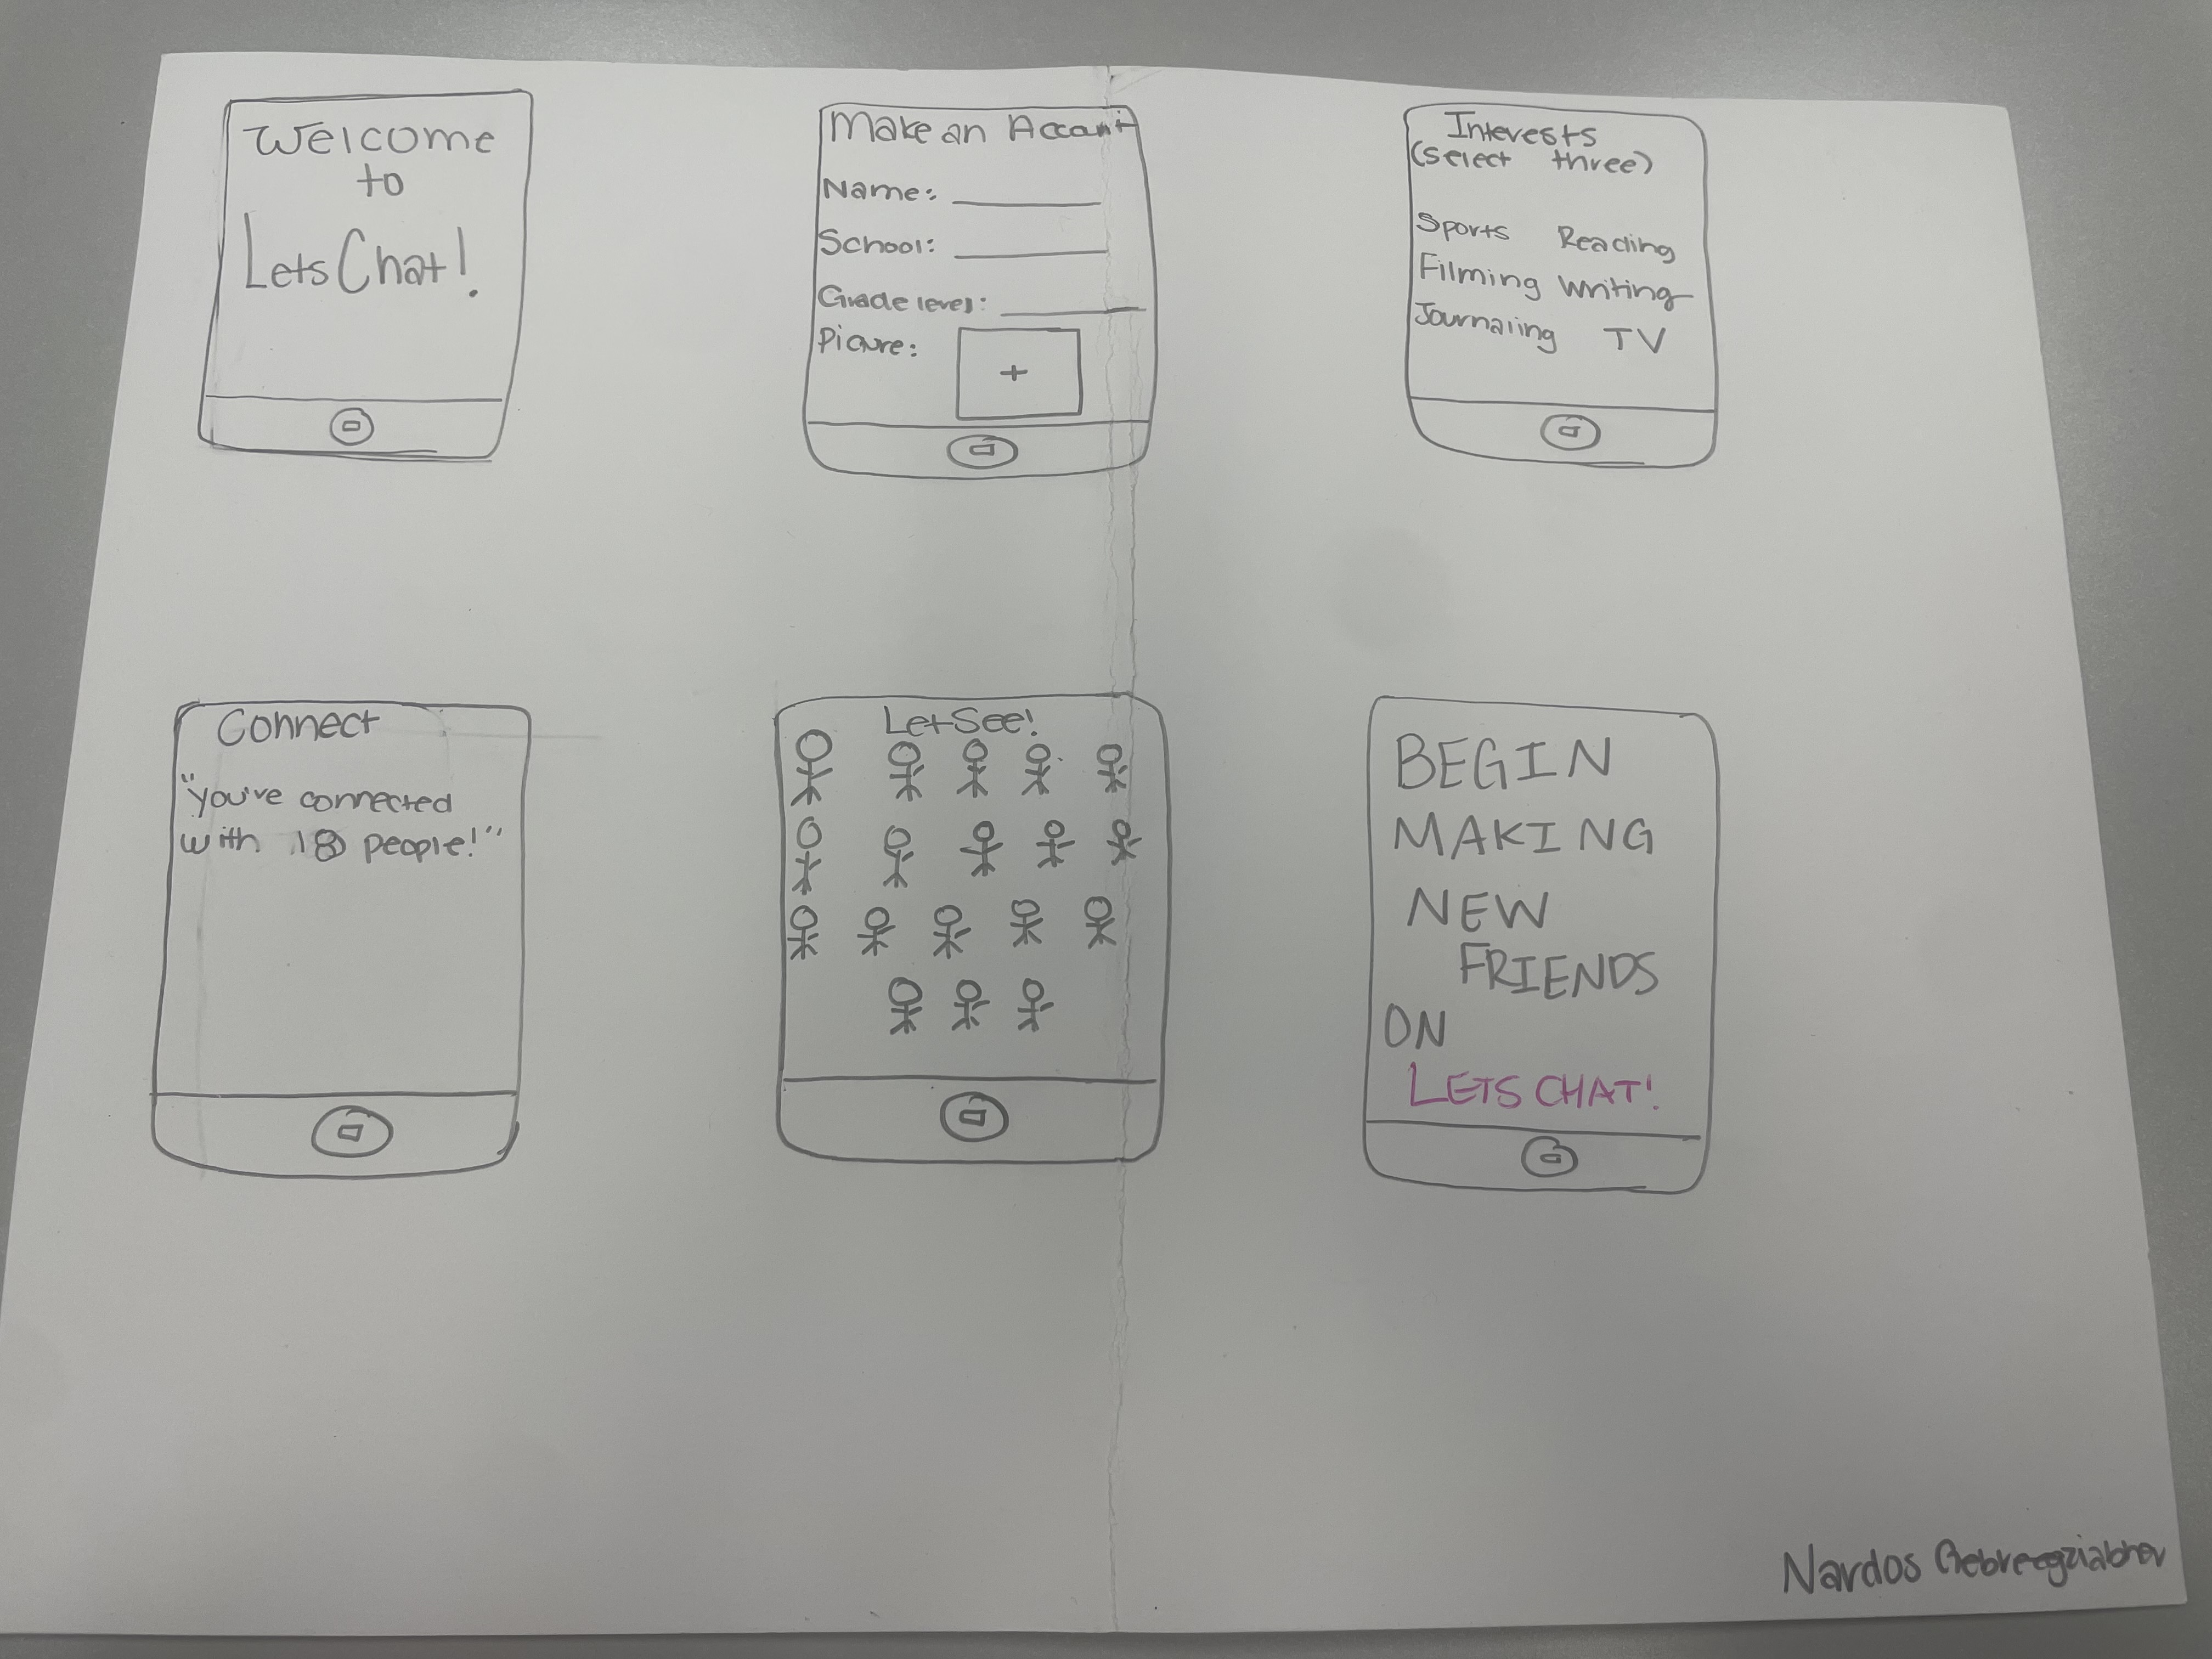 Welcome
to
Lets Chat!
Make an Account
Name:
School:
Grade level:
Picture:
+
Interests
(select three)
Sports Reading
Filming Writing
Journaling TV
Connect
"You've connected
with 18 people!"
Let See!
BEGIN
MAKING
NEW
FRIENDS
ON
LETS CHAT!
Nardos Gebreegziabher